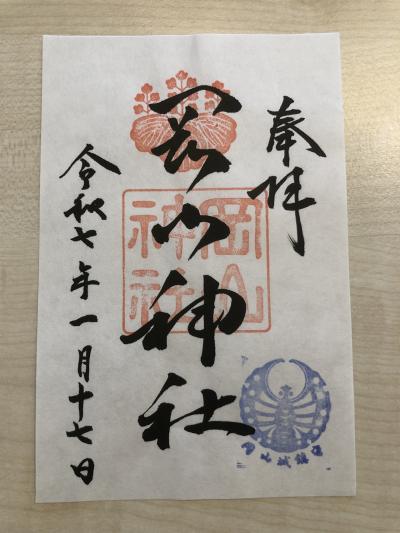 奉拝
岡山神社
岡山
神社
令和七年一月十七日
山城鎮